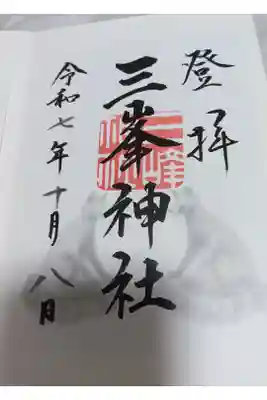 登拝
三峯神社
令和七年十月八日